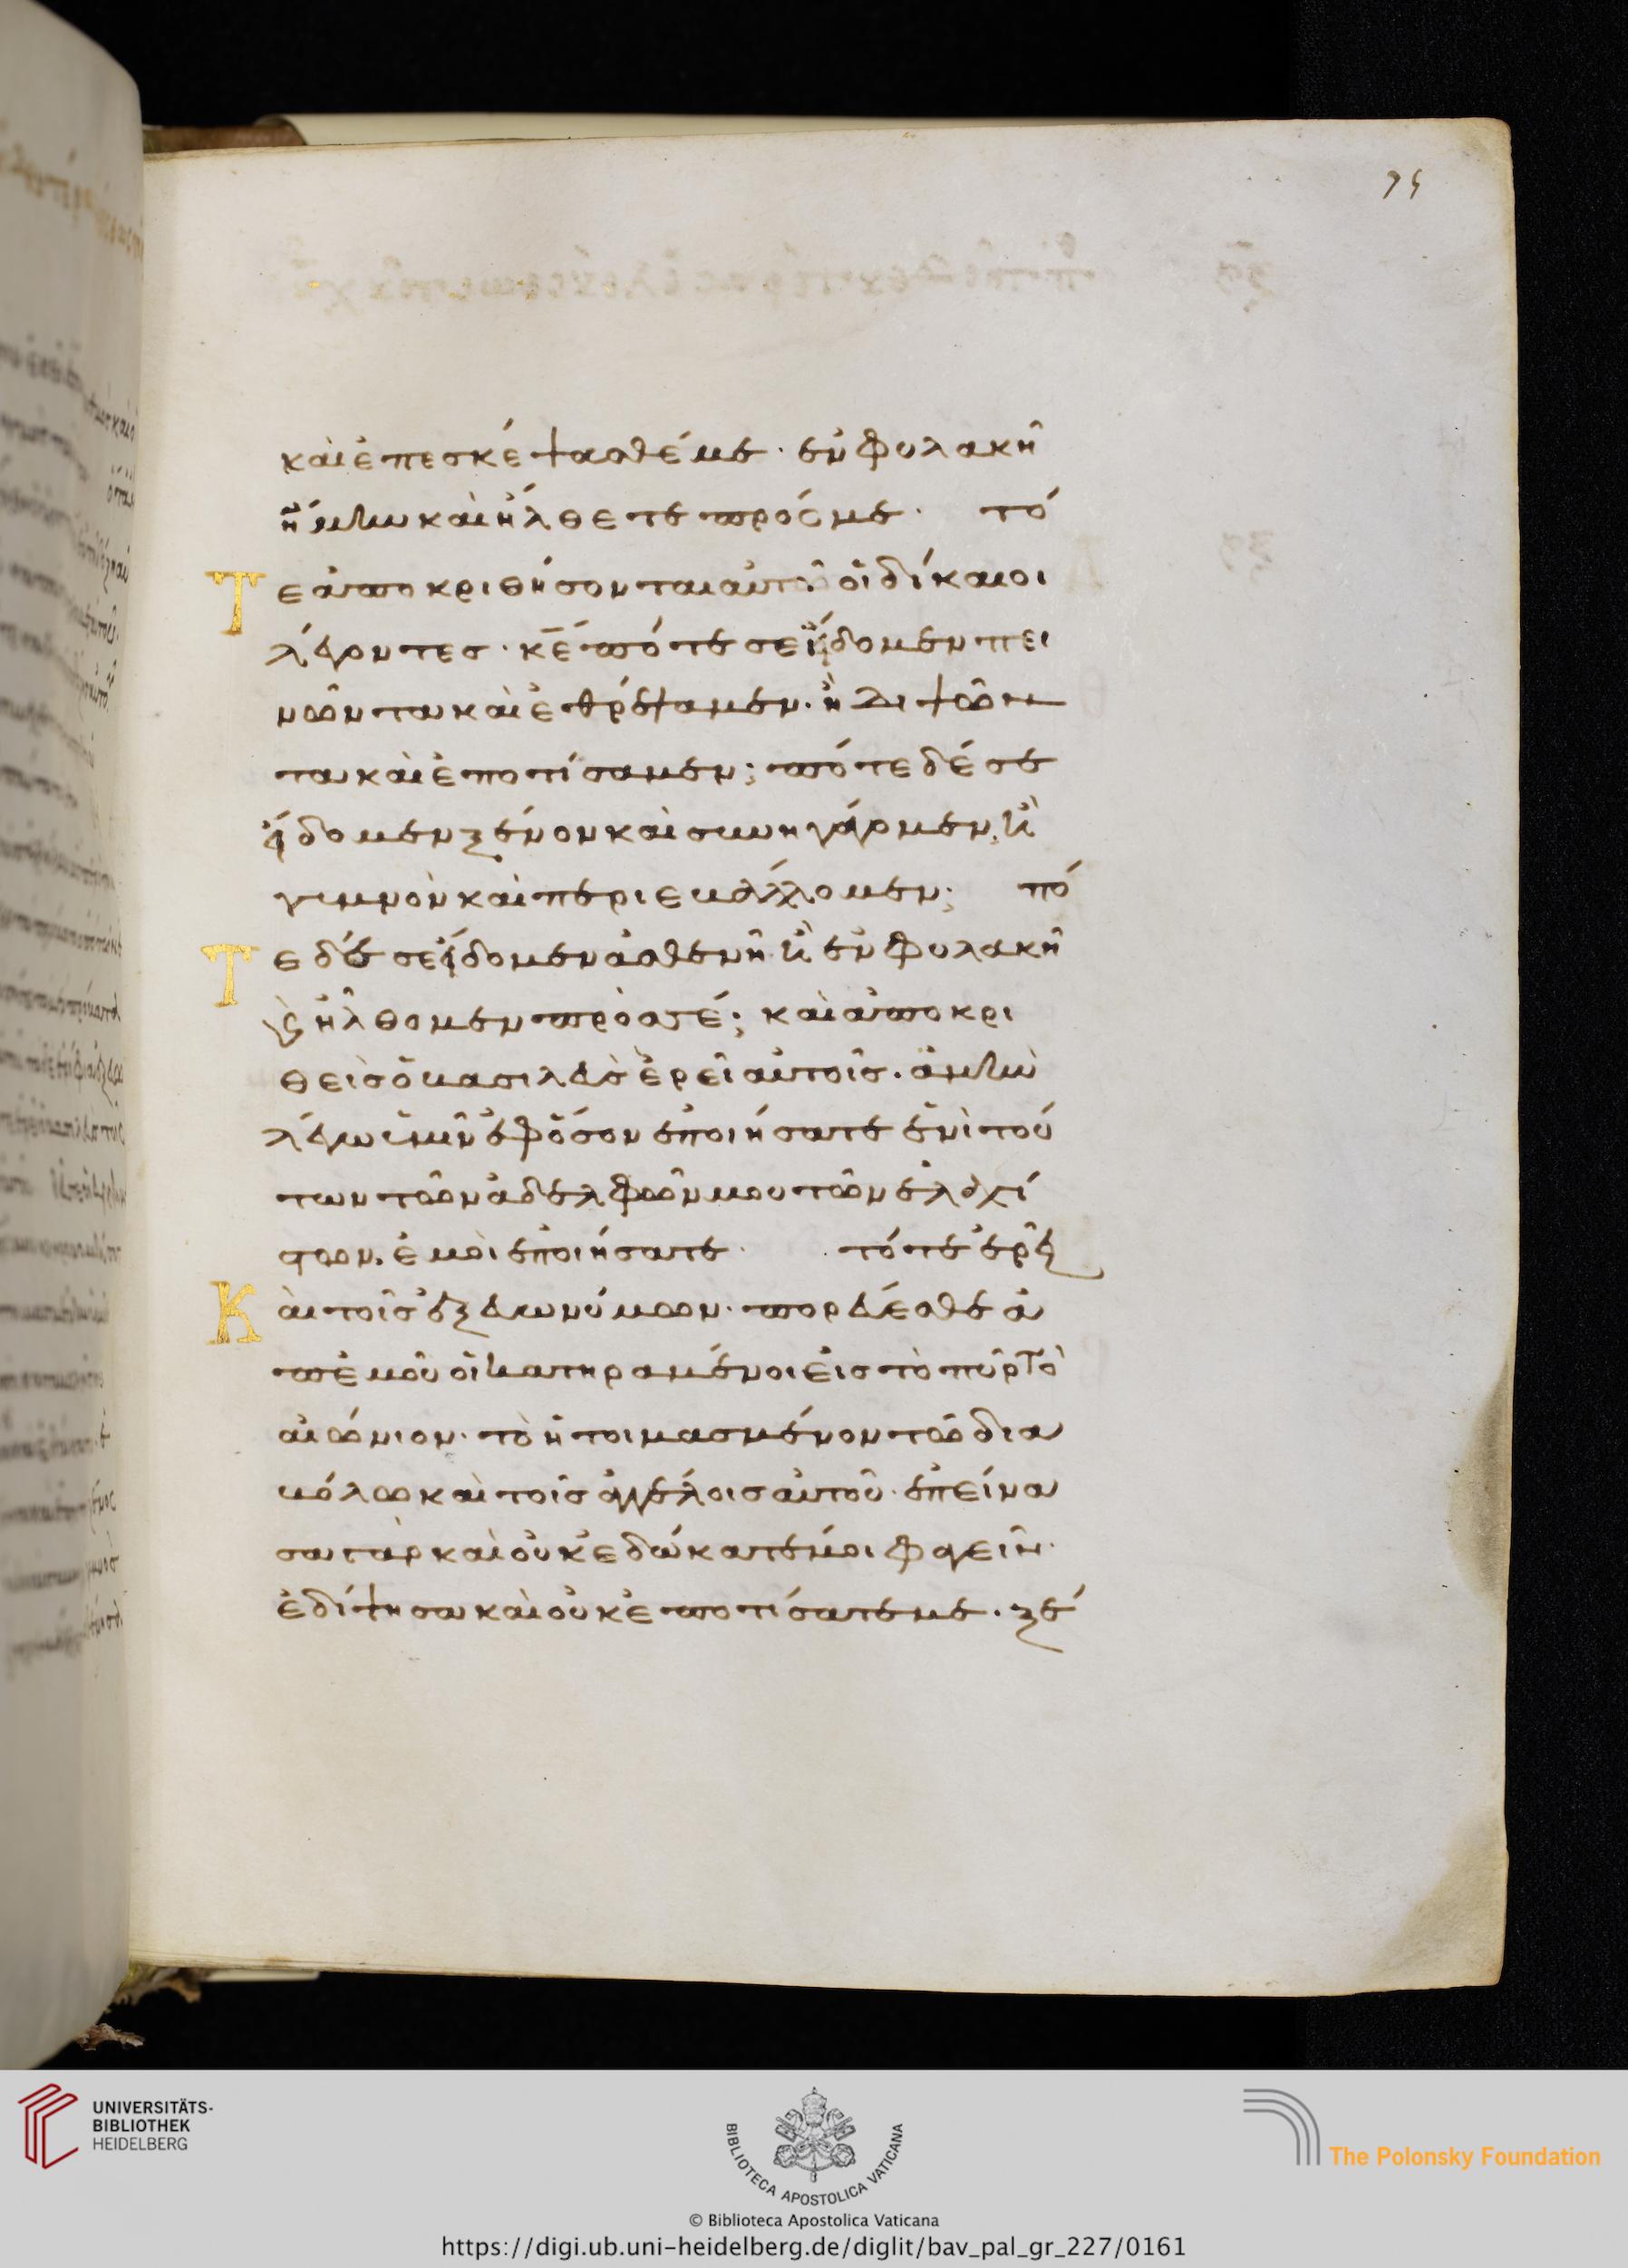 75
καὶ ἐπεσκέψασθέ με· ἐν φυλακῆ
ἤμην καὶ ἤλθετε πρός με· τό
Τε ἀποκριθήσονται αὐτῶ οἱ δίκαιοι
λέγοντες· κε πότε σε ἴδομεν πει
νῶντα καὶ ἐθρέψαμεν· ἢ διψῶν
τα καὶ ἐποτίσαμεν; πότε δέ σε
ἴδομεν ξένον καὶ συνηγάγομεν, ἢ
γυμνὸν καὶ περιεβάλλομεν; πό
Τε δέ σε ἴδομεν ἀσθενῆ ἢ ἐν φυλακῆ
ϗ ἤλθομεν πρός σέ; καὶ ἀποκρι
θεὶς ὁ βασιλεὺς ἐρεῖ αὐτοῖς· ἀμὴν
λέγω ὑμῖν ἐφ ὅσον ἐποιήσατε ἑνὶ τού
των τῶν ἀδελφῶν μου τῶν ἐλαχί
στων, ἐμοὶ ἐποιήσατε· τότε ἐρεῖ
Καὶ τοῖς ἐξ εὐωνύμων· πορεύεσθε ἀ
π ἐμοῦ οἱ κατηραμένοι εἰς τὸ πῦρ τὸ
αἰώνιον· τὸ ἡτοιμασμένον τῶ δια
βόλω καὶ τοῖς ἀγγέλοις αὐτοῦ· ἐπείνα
σα γὰρ καὶ οὐκ ἐδώκατέ μοι φαγεῖν·
ἐδίψησα καὶ οὐκ ἐποτίσατέ με· ξέ
UNIVERSITÄTS-
BIBLIOTHEK
HEIDELBERG
BIBLIOTECA APOSTOLICA VATICANA
© Biblioteca Apostolica Vaticana
The Polonsky Foundation
https://digi.ub.uni-heidelberg.de/diglit/bav_pal_gr_227/0161